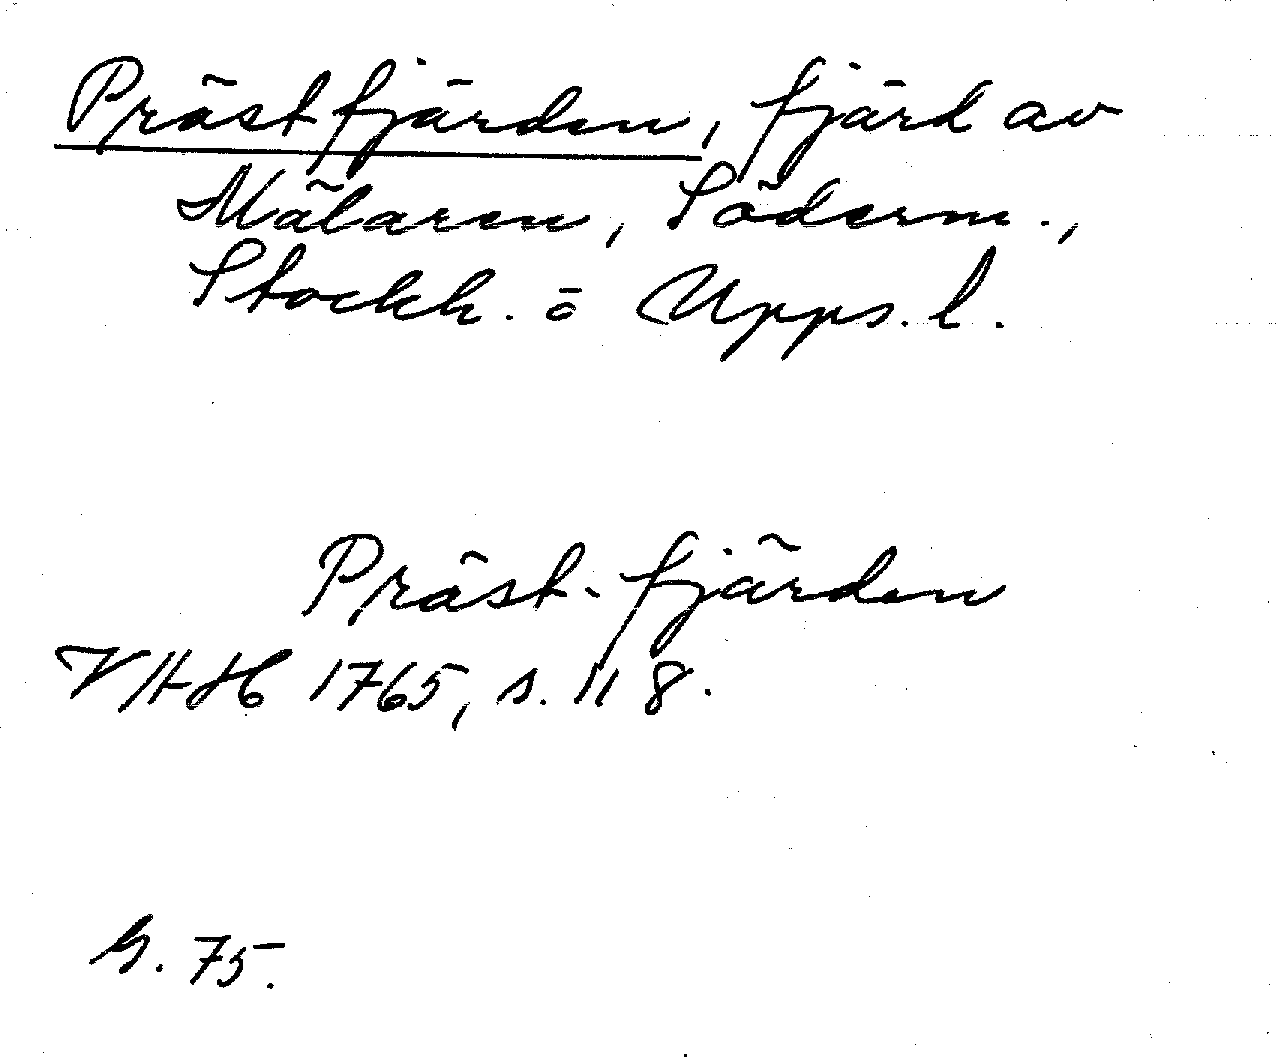 Prästfjärden, fjärd av
Mälaren, Söderm.,
Stockh. o Upps. l.
Präst-fjärden
VHAH 1765, s. 118.
G. 75.